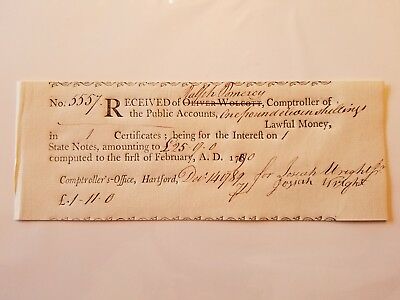 Ralph Pomeroy
No. 5557. RECEIVED of OLIVER WOLCOTT, Comptroller of
the Public Accounts, One pound eleven shillings
Lawful Money,
in 1 Certificates; being for the Interest on 1
State Notes, amounting to £25-0-0
computed to the first of February, A. D. 1790
Comptroller's-Office, Hartford, Decr 14 1789 for Josiah Wright Jr
£1-11-0 Josiah Wright